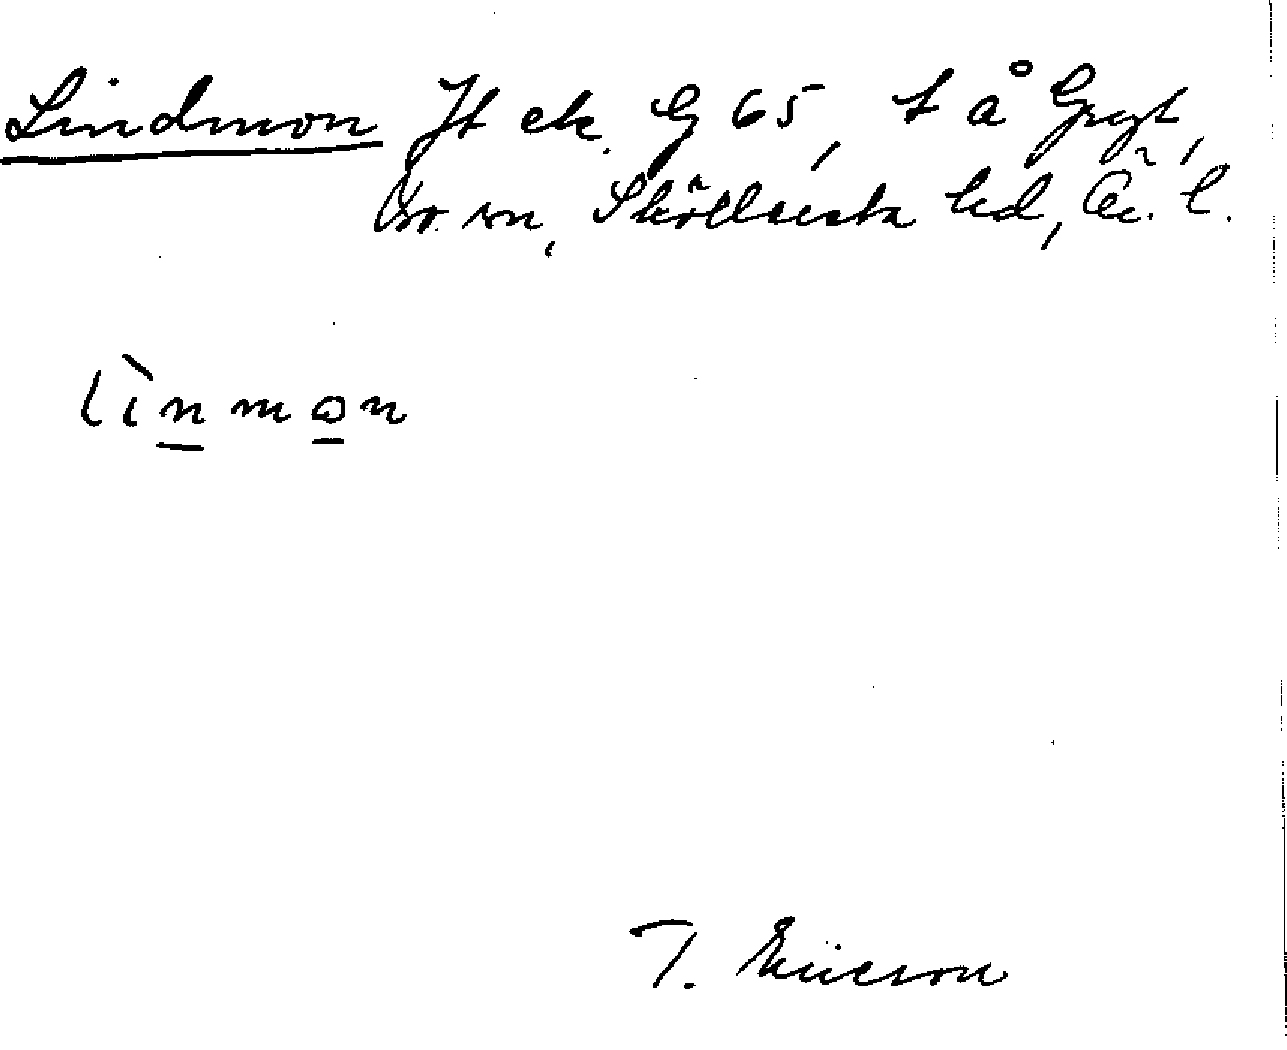 Lindmon Jt ek. G 65, t å Gryt,
sn, Sköllersta hd, l.
lìnmon
T. Ericson